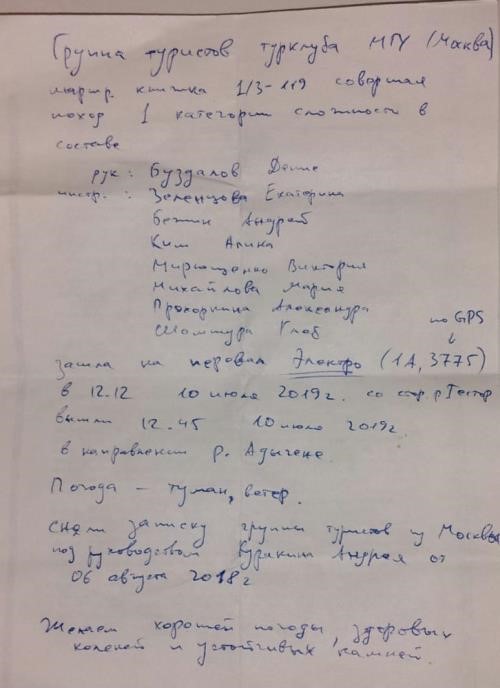 Группа туристов турклуба МГУ (Москва)
маршр. книжка 1/3-119 совершая
поход 1 категории сложности в
составе
рук: Буздалов Денис
инстр.: Зеленцова Екатерина
Бежин Андрей
Ким Алина
Мирющенко Виктория
Михайлова Мария
Прохоркина Александра
Шомшура Глеб
по GPS
зашла на перевал Электро (1А, 3775)
в 12.12 10 июля 2019г. со стор. р.
вышли 12.45 10 июля 2019г.
в направлении р. Адыгене.
Погода – туман, ветер.
сняли записку группы туристов из Москвы
под руководством Андрея от
06 августа 2018г
Желаем хорошей погоды, здоровых
коленей и устойчивых камней.